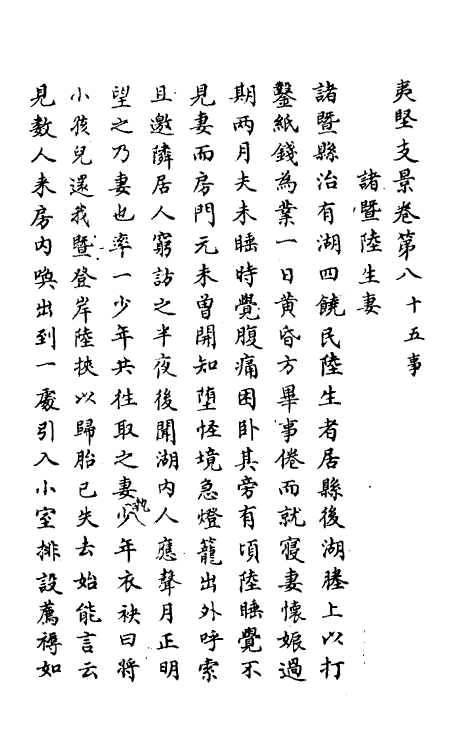 夷堅支景卷第八十五事
諸暨陸生妻
諸暨縣治有湖四饒民陸生者居縣後湖塍上以打
鑿紙錢為業一日黄昏方畢事倦而就寢妻懷娠過
期兩月夫未睡時覺腹痛困卧其旁有頃陸睡覺不
見妻而房門元未曾開知堕怪境急燈籠出外呼索
且邀隣居人窮訪之半夜後聞湖内人應聲月正明
望之乃妻也率一少年共往取之妻執少年衣袂曰將
小孩兒還我暨登岸陸挾以歸胎已失去始能言云
見數人来房内喚出到一處引入小室排設薦褥如